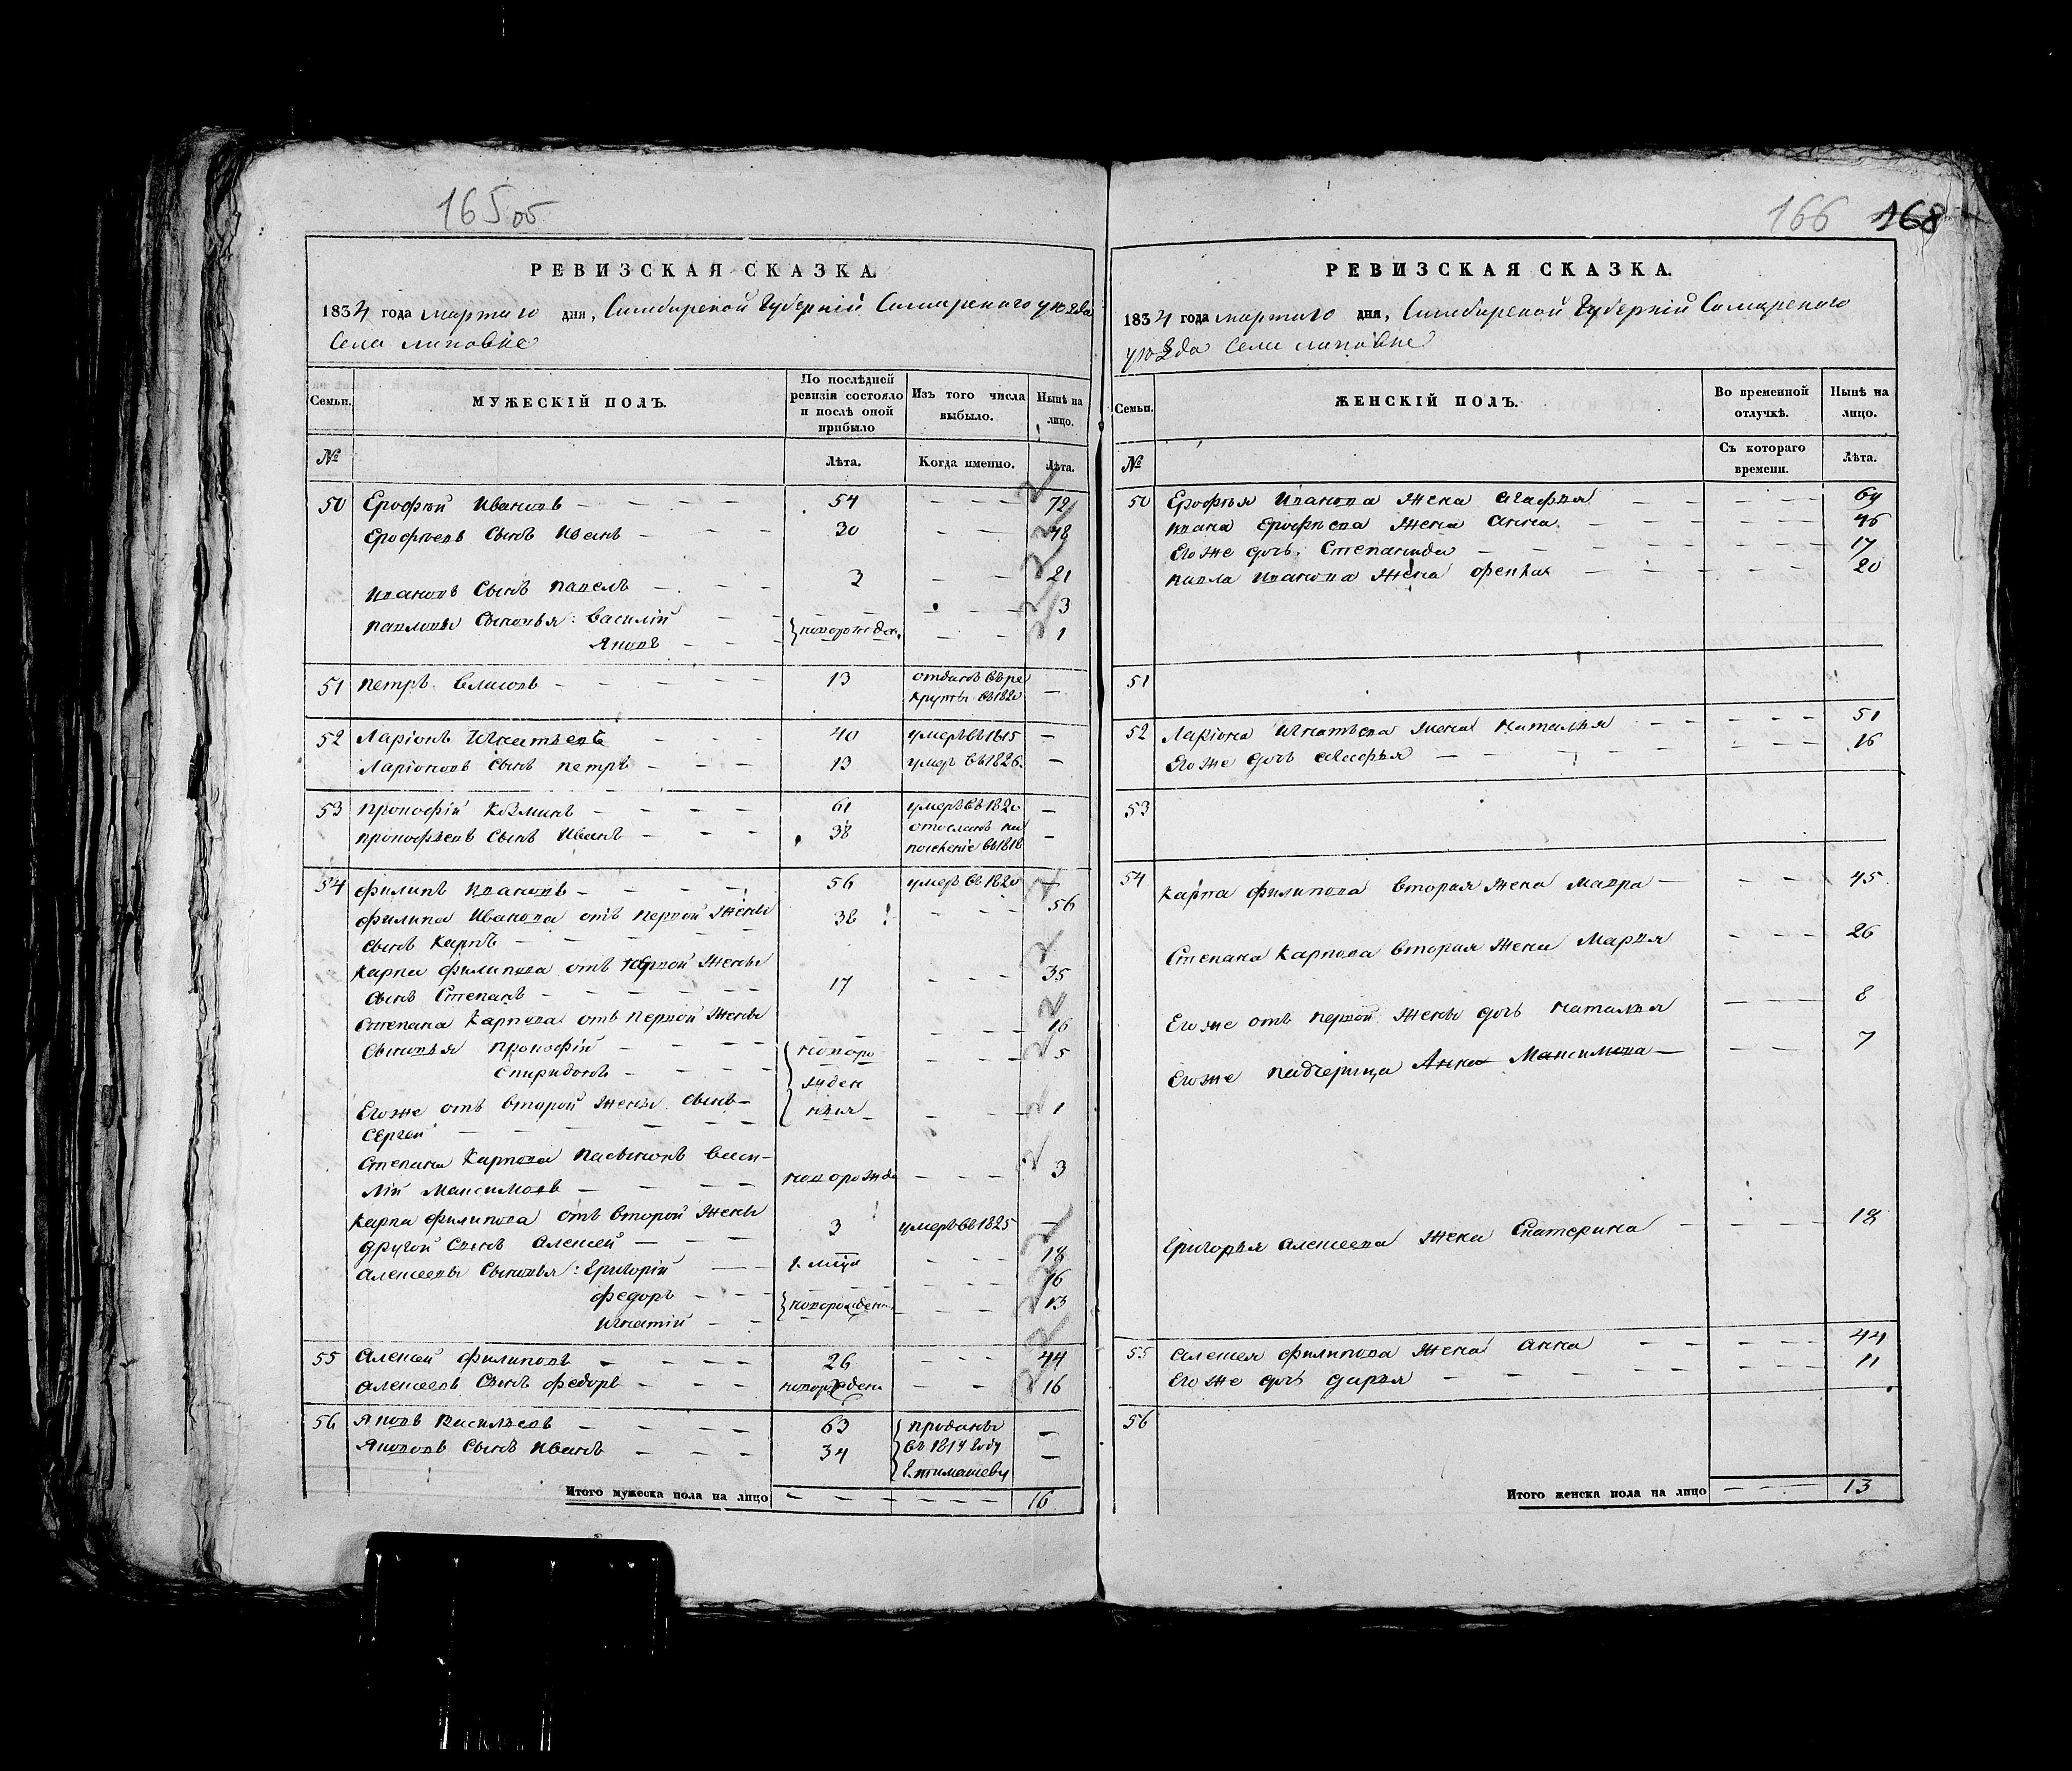 165 об
РЕВИЗСКАЯ СКАЗКА.
1834 года марта 10 дня, Симбирской Губернiй Самарского уѣзда
Села Липовке
Семьи.
МУЖЕСКIЙ ПОЛЪ.
По послѣдней ревизiи состояло и послѣ оной прибыло
Изъ того числа выбыло.
Нынѣ на лицо.
№
Лѣта.
Когда именно.
Лѣта.
50 Ерофѣй Ивановъ 54 72
Ерофѣевъ сынъ Иванъ 30 48
Ивановъ сынъ Павелъ 3 21
Павловы сыновья: Василiй 3
Яковъ новорожден. 1
51 Петръ Власовъ 13 отданъ въ ре
круты въ 1820
52 Ларiонъ Игнатьевъ 40 умеръ въ 1815
Ларiоновъ сынъ Петръ 13 умеръ въ 1826
53 Прокофiй Козминъ 61 умеръ въ 1820
Прокофьевъ сынъ Иванъ 38 отосланъ на
поселенiе въ 1818
54 Филипъ Ивановъ 56 умеръ въ 1820
Филипа Иванова отъ первой жены 38 56
сынъ Карпъ
Карпа Филипова отъ первой жены
сынъ Степанъ 17 35
Степана Карпова отъ первой жены
сыновья Прокофiй новоро 16
Спиридонъ жден 5
Его же отъ второй жены сынъ ныя 1
Сергей
Степана Карпова пасынокъ Васи-
лiй Максимовъ новорожде 3
Карпа Филипова отъ второй жены
другой сынъ Алексей 3 умеръ въ 1825
Алексеевы сыновья: Григорiй 18
Федоръ 16
Игнатiй новорожден 13
55 Алексей Филиповъ 26 44
Алексеевъ сынъ Федоръ новорожден 16
56 Яковъ Васильевъ 63 проданы
Яковъ сынъ Иванъ 34 въ 1817 году
Итого мужеска пола на лицо 16
166 168
РЕВИЗСКАЯ СКАЗКА.
1834 года марта 10 дня, Симбирской Губернiй Самарского
уѣзда Села Липовке
Семьи.
ЖЕНСКIЙ ПОЛЪ.
Во временной отлучкѣ.
Нынѣ на лицо.
№
Съ котораго времени.
Лѣта.
50 Ерофѣя Иванова жена Агафья 69
Ивана Ерофѣева жена Анна 46
Его же дочь Степанида 17
Павла Иванова жена 20
51
52 Ларiона Игнатьева жена Наталья 51
Его же дочь 16
53
54 Карпа Филипова вторая жена Мавра 45
Степана Карпова вторая жена Марья 26
Его же отъ первой жены дочь Наталья 8
Его же падчерица Анна Максимова 7
Григорья Алексеева жена Екатерина 18
55 Алексея Филипова жена Анна 44
Его же дочь Дарья 11
56
Итого женска пола на лицо 13